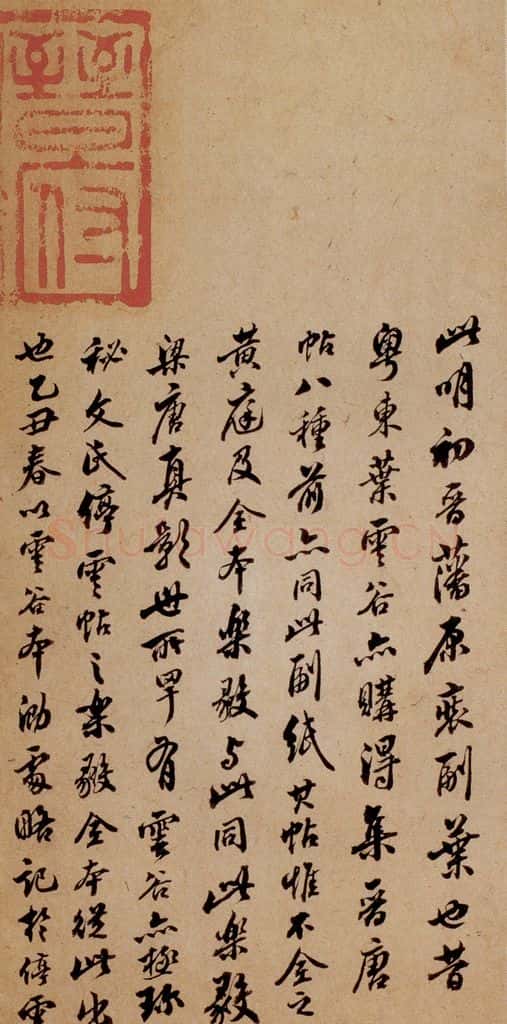 此明初晋藩原裱副葉也昔
粤東葉雲谷亦購得集晋唐
帖八種前亦同此副紙其帖惟不全之
黄庭及全本樂毅与此同此樂毅
梁唐真影世所罕有雲谷亦極珎
秘文氏停雲帖之樂毅全本從此出
也乙丑春以雲谷本勘處略記於停雲